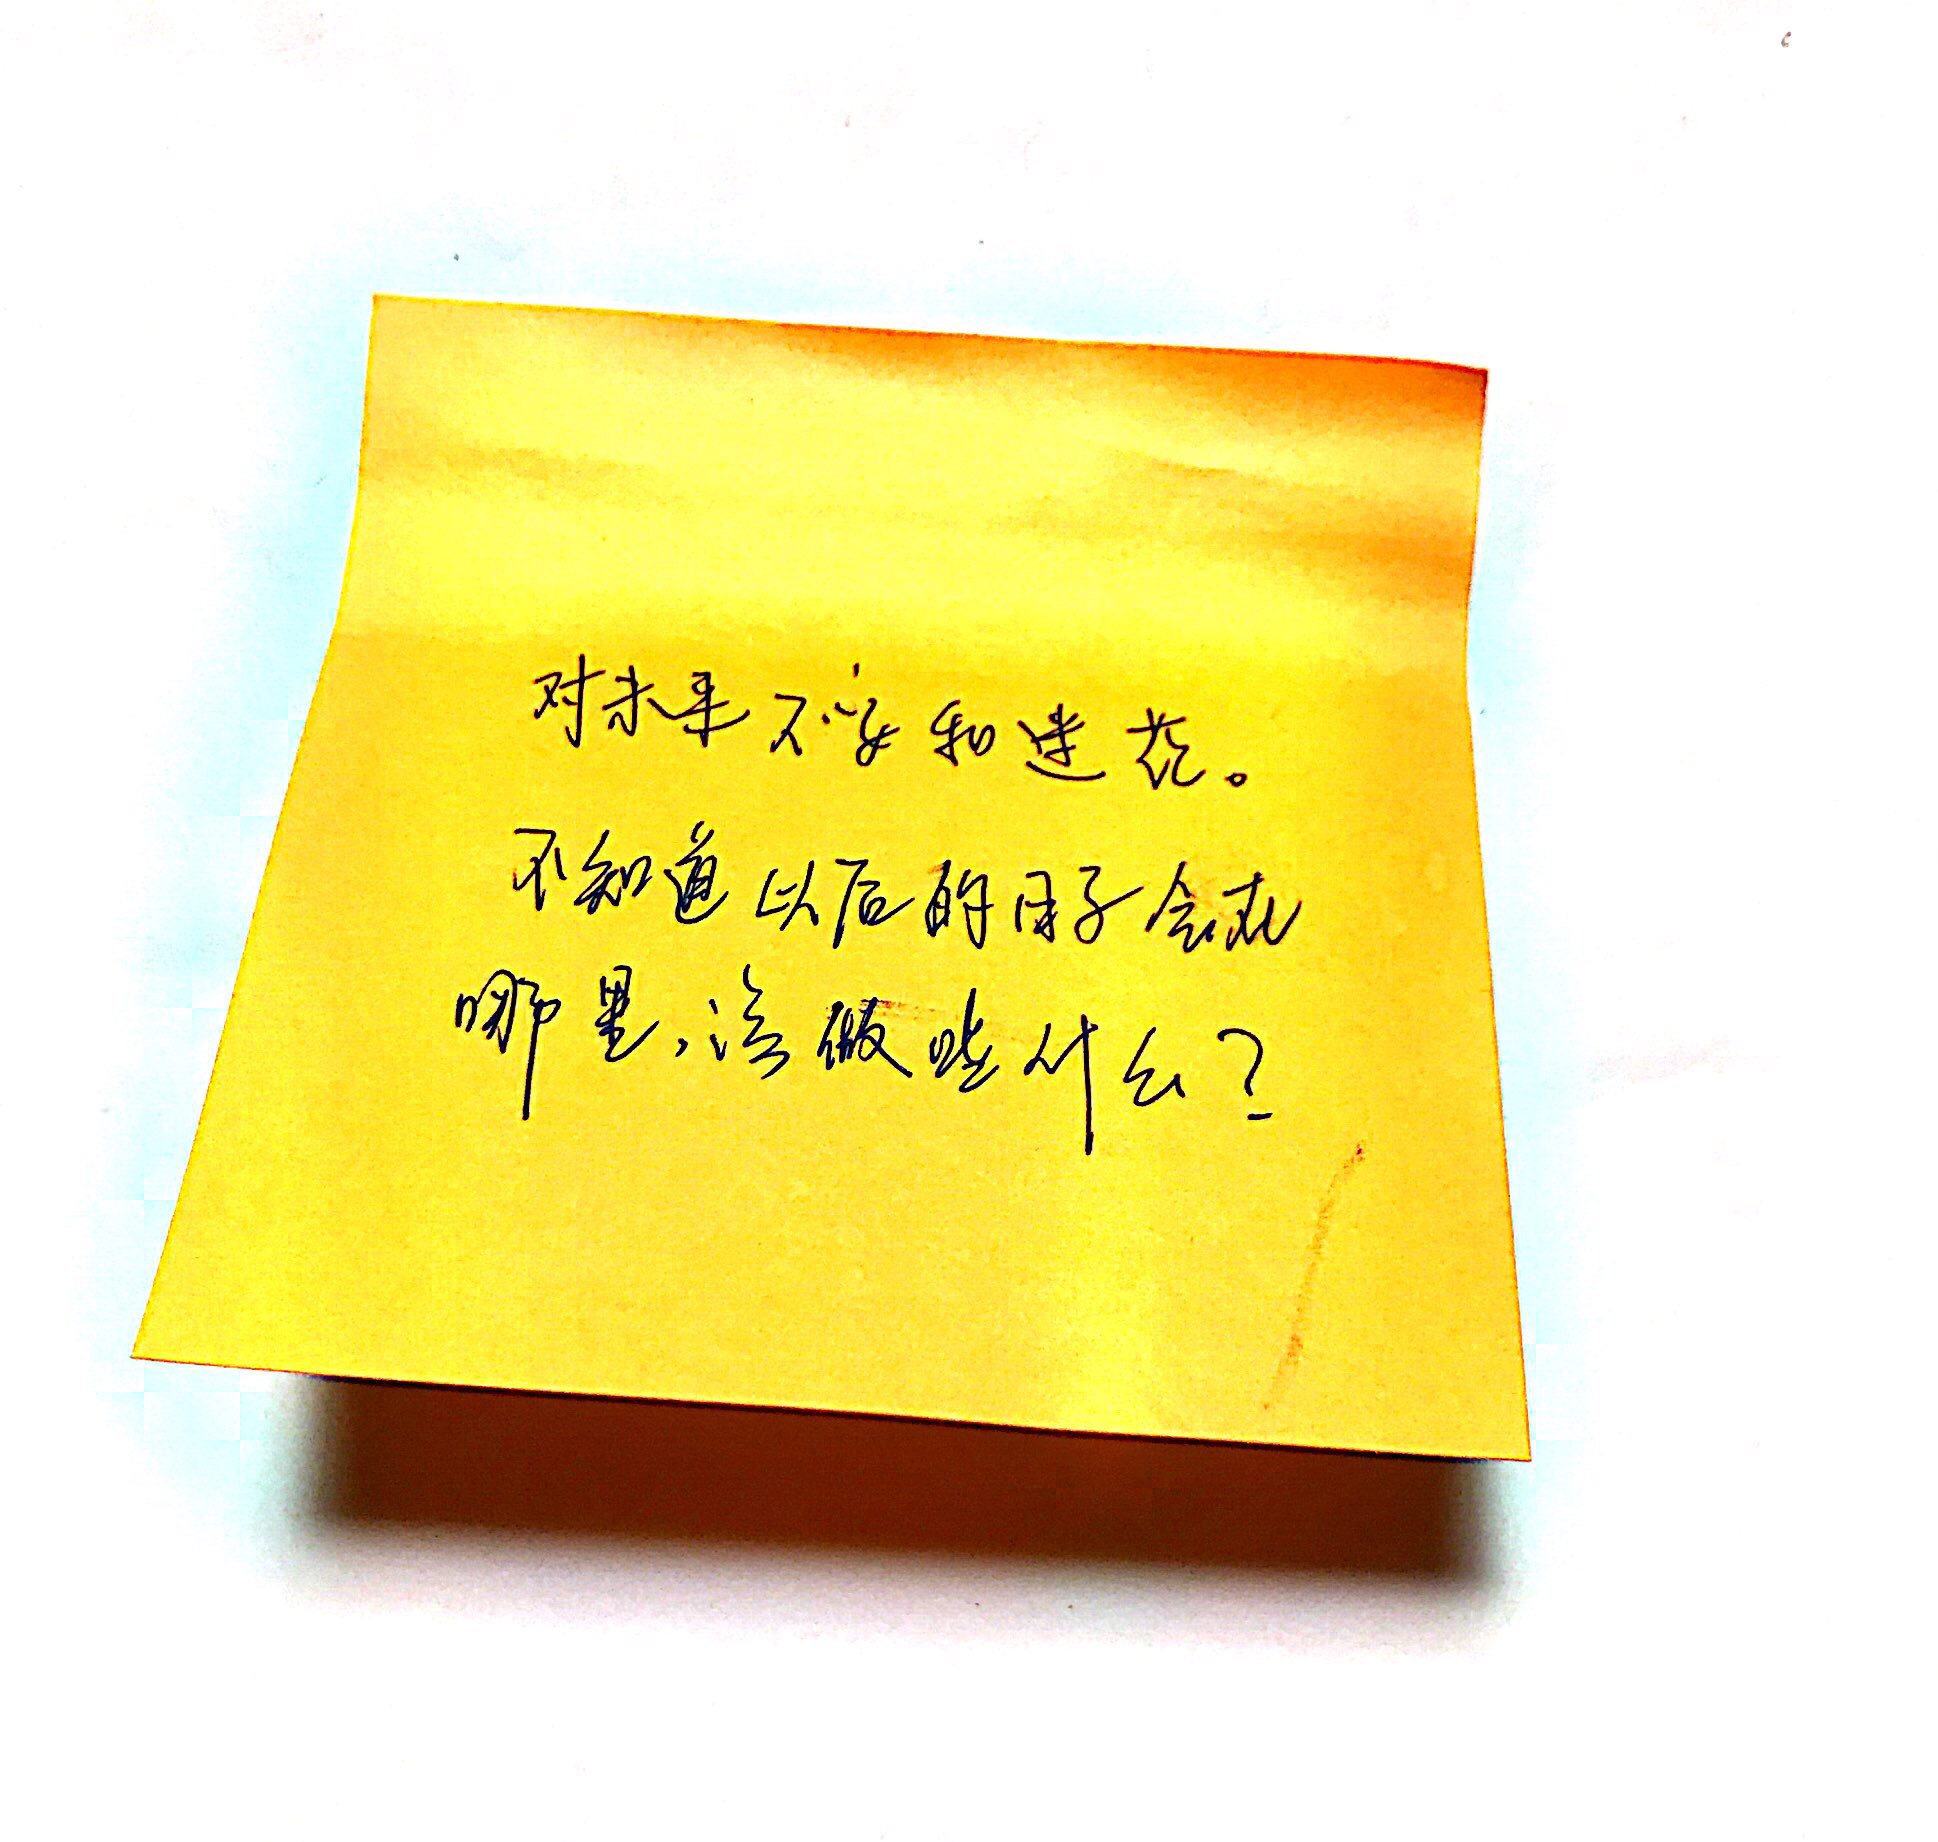 对未来不安和迷茫。
不知道以后的日子会在
哪里，该做些什么？